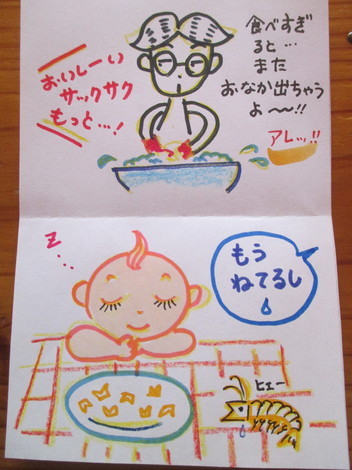 おいしーい
サックサク
もっと…!
食べすぎ
ると…
また
おなか出ちゃう
よ〜!!
アレッ!!
z
もう
ねてるし
ヒェー